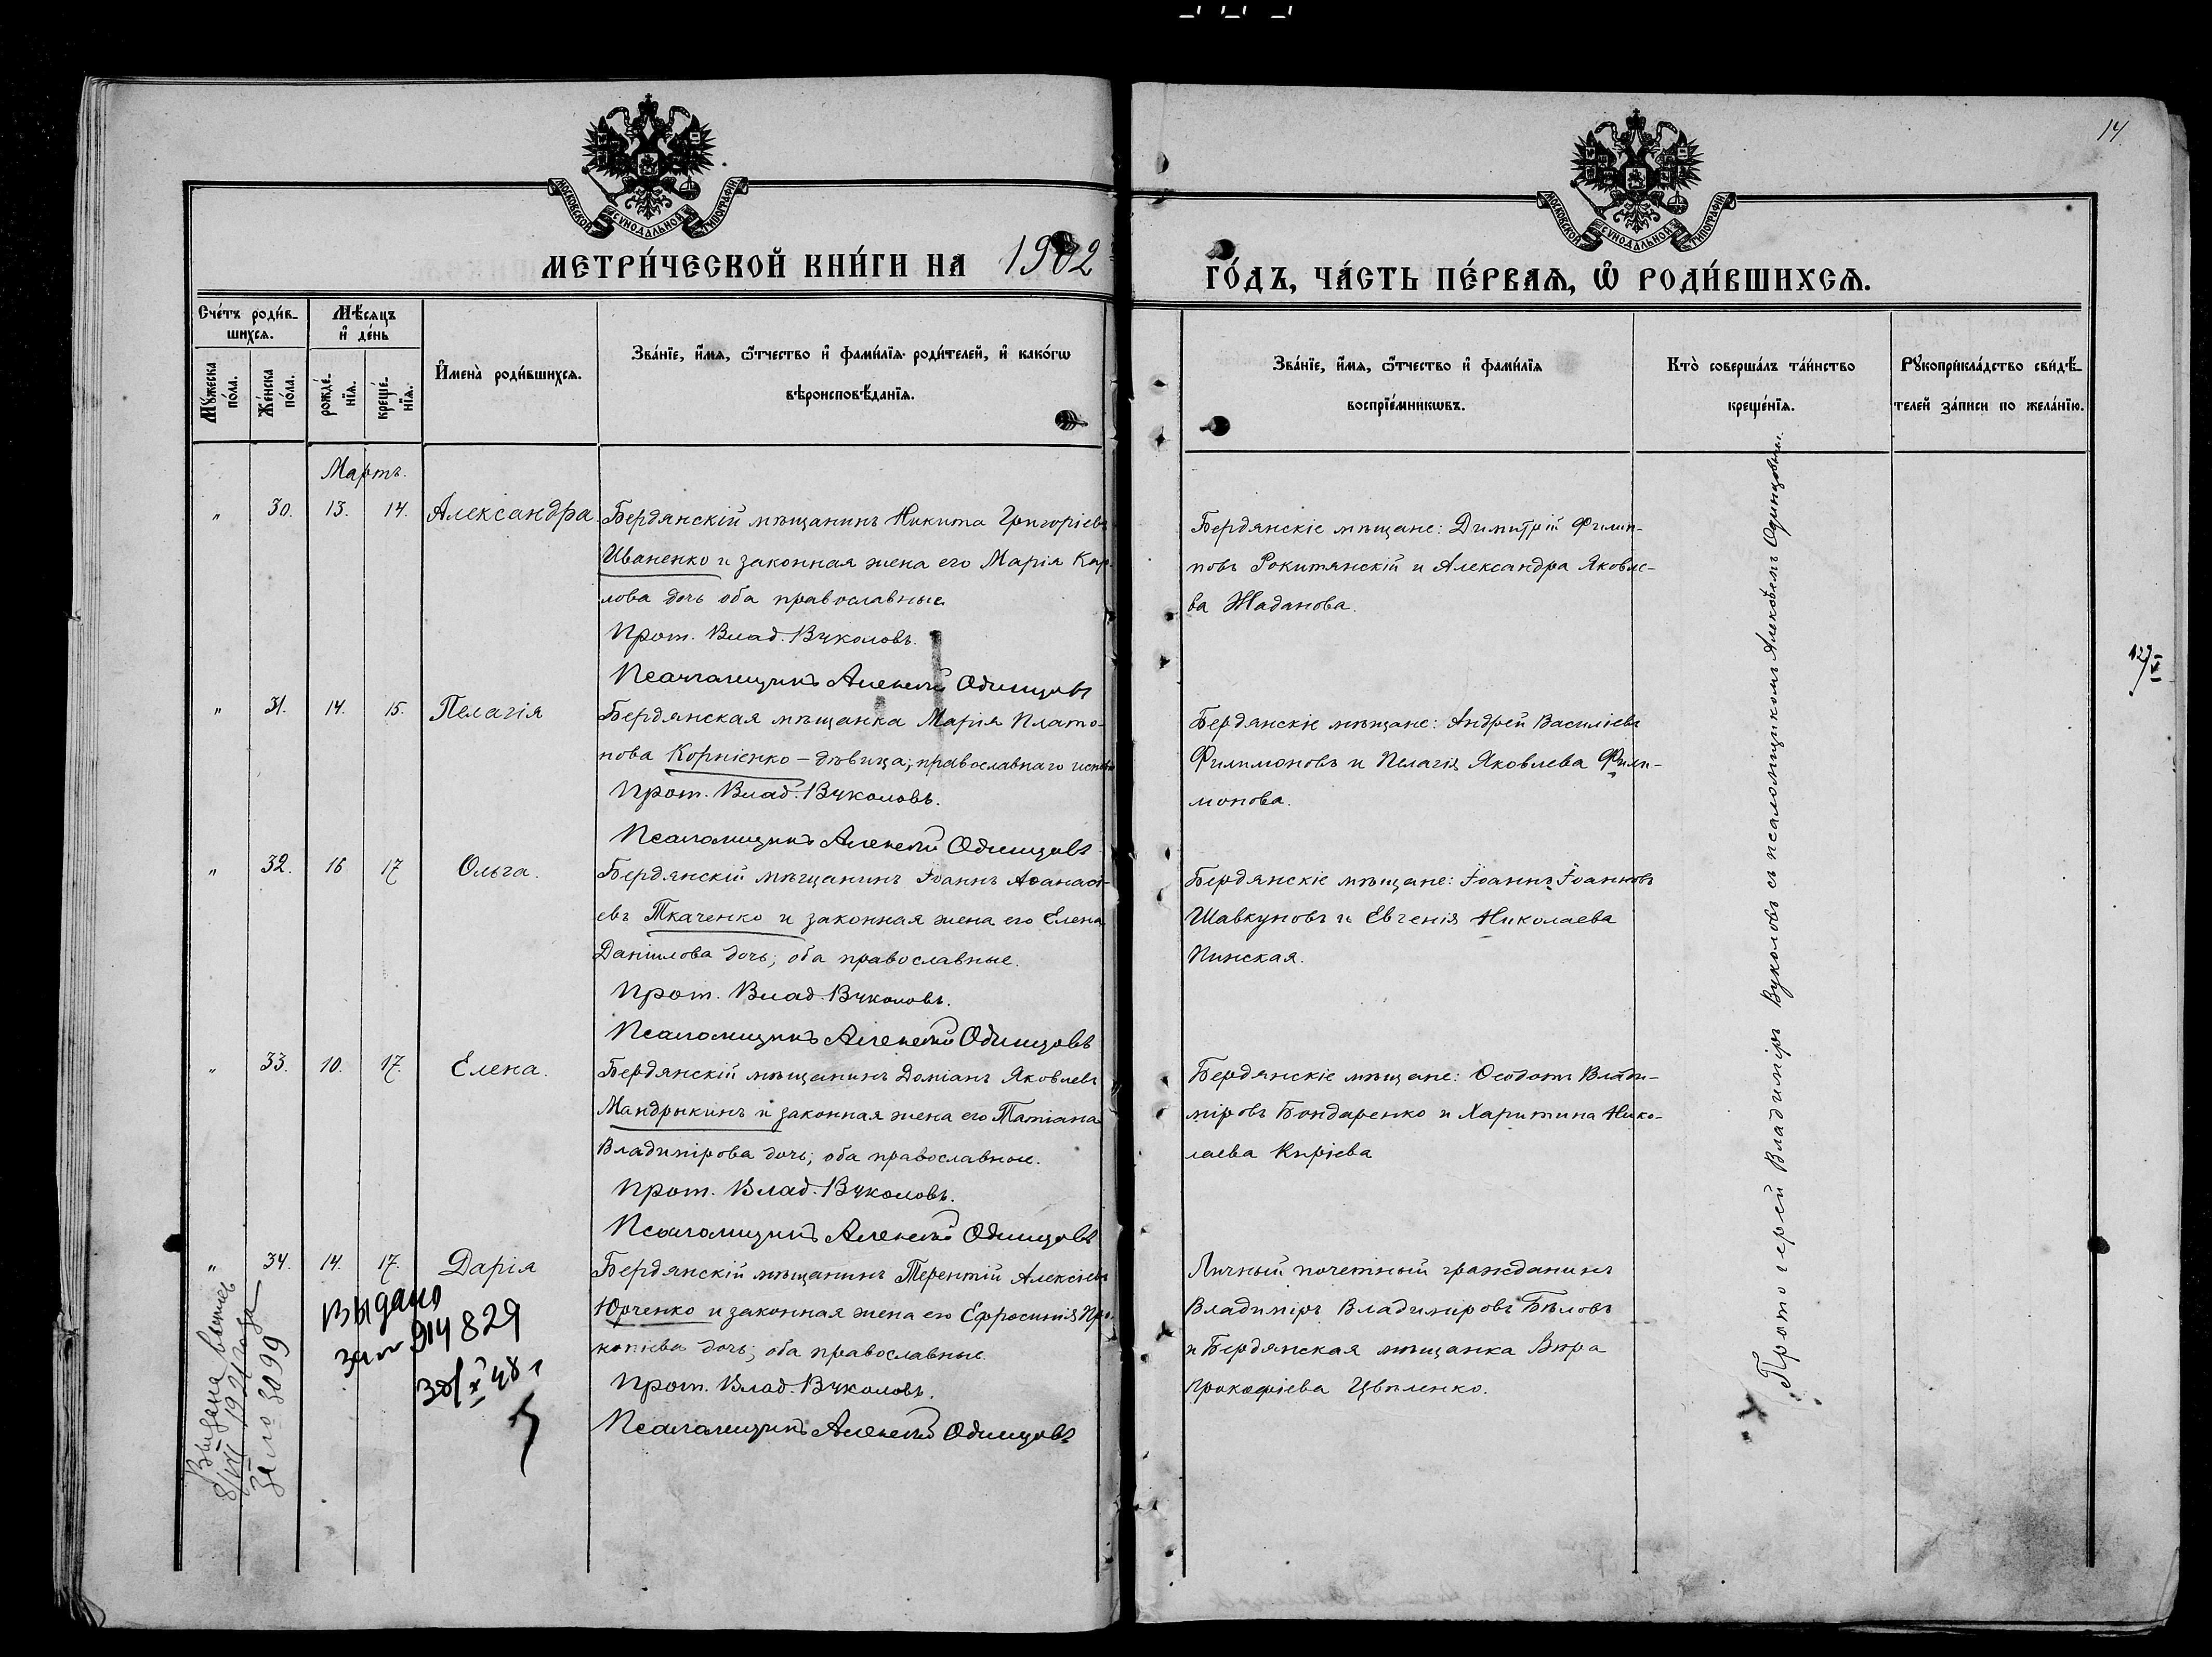 14.
МОСКОВСКОЙ СѴНОДАЛЬНОЙ ТИПОГРАФІИ
МОСКОВСКОЙ СѴНОДАЛЬНОЙ ТИПОГРАФІИ
МЕТРИ́ЧЕСКОЙ КНИ́ГИ НА 1902
ГО́ДЪ, ЧА́СТЬ ПЕ́РВАѦ, Ѡ҆ РОДИ́ВШИХСѦ.
Сче́тъ роди́в-
шихсѧ.
Мꙋ́жеска по́ла.
Же́нска по́ла.
Мѣ́сяцъ
и҆ де́нь
рожде́-нїѧ.
креще́-нїѧ.
И҆мена̀ роди́вшихсѧ.
Зва́нїе, и҆́мѧ, ѻ҆́тчество и҆ фами́лїѧ роди́телей, и҆ како́гѡ
вѣроисповѣ́данїѧ.
Зва́нїе, и҆́мѧ, ѻ҆́тчество и҆ фами́лїѧ
воспрїе́мникѡвъ.
Кто̀ соверша́лъ та́инство
креще́нїѧ.
Рꙋкоприкла́дство свидѣ́-
телей за́писи по жела́нїю.
Мартъ.
" 30. 13. 14. Александра. Бердянскій мѣщанинъ Никита Григоріевъ
Иваненко и законная жена его Марія Кар-
лова дочь оба православные
Прот. Влад. Вуколовъ.
Псаломщикъ Алексѣй Одинцовъ
Бердянскіе мѣщане: Димитрій Филип-
повъ Рокитянскій и Александра Яковле-
ва Жаданова.
" 31. 14. 15. Пелагія Бердянская мѣщанка Марія Плато-
нова Корніенко - дѣвица; православнаго
Прот. Влад. Вуколовъ.
Псаломщикъ Алексѣй Одинцовъ
Бердянскіе мѣщане: Андрей Василіевъ
Филимоновъ и Пелагія Яковлева Фили-
монова.
" 32. 16 17 Ольга. Бердянскій мѣщанинъ Іоаннъ Аѳанасі-
евъ Ткаченко и законная жена его Елена
Даніилова дочь; оба православные.
Прот. Влад. Вуколовъ.
Псаломщикъ Алексѣй Одинцовъ
Бердянскіе мѣщане: Іоаннъ Іоанновъ
Шавкуновъ и Евгенія Николаева
Пинская.
" 33. 10. 17. Елена. Бердянскій мѣщанинъ Доміанъ Яковлевъ
Мандрыкинъ и законная жена его Татіана
Владимірова дочь; оба православные.
Прот. Влад. Вуколовъ.
Псаломщикъ Алексѣй Одинцовъ
Бердянскіе мѣщане: Ѳеодотъ Влади-
міровъ Бондаренко и Харитина Нико-
лаева Киріева
" 34. 14. 17. Дарія Бердянскій мѣщанинъ Терентій Алексіевъ
Юрченко и законная жена его Ефросинія Про-
копіева дочь; оба православные.
Прот. Влад. Вуколовъ.
Псаломщикъ Алексѣй Одинцовъ
Личный почетный гражданинъ
Владиміръ Владиміровъ Бѣловъ
и Бердянская мѣщанка Вѣра
Прокофіева Цвѣленко.
Протоіерей Владиміръ Вуколовъ съ псаломщикомъ Алексѣемъ Одинцовымъ.
Выдано
за № 914829
Выдана
8/VII 1921 года
за № 3099